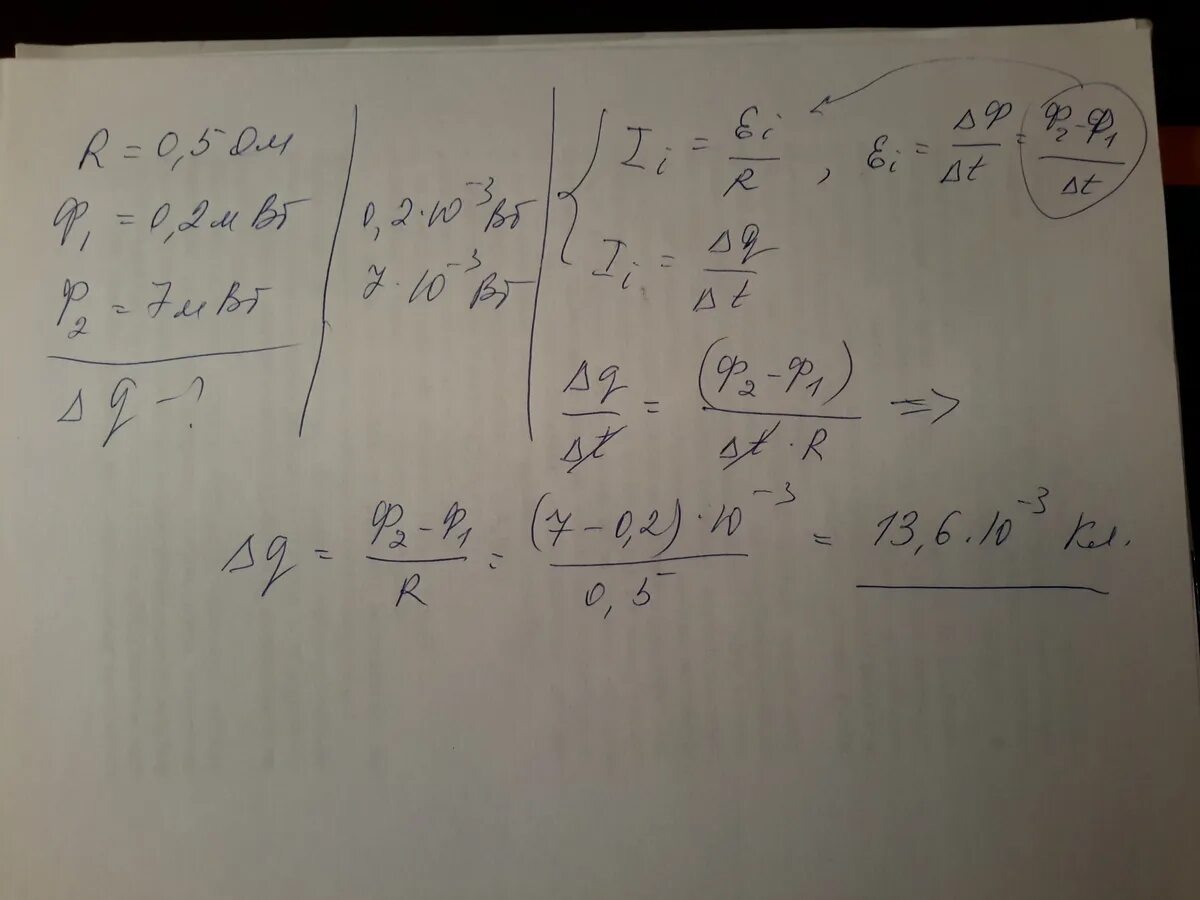 R = 0,5 Ом
Ф₁ = 0,2 мВб
Ф₂ = 7 мВб
Δq - ?
0,2·10⁻³ Вб
7·10⁻³ Вб
Iᵢ = Ɛᵢ/R , Ɛᵢ = ΔФ/Δt = (Ф₂-Ф₁)/Δt
Iᵢ = Δq/Δt
Δq/Δt = (Ф₂-Ф₁)/(Δt·R) =>
Δq = (Ф₂-Ф₁)/R = (7-0,2)·10⁻³/0,5 = 13,6·10⁻³ Кл.